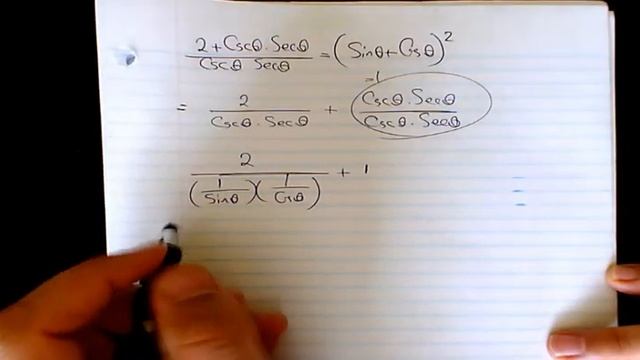 2 + Cscθ · Secθ / Cscθ Secθ = (Sinθ + Cosθ)²
= 2 / Cscθ · Secθ + Cscθ · Secθ / Cscθ · Secθ = 1
2 / (1/Sinθ)(1/Cosθ) + 1